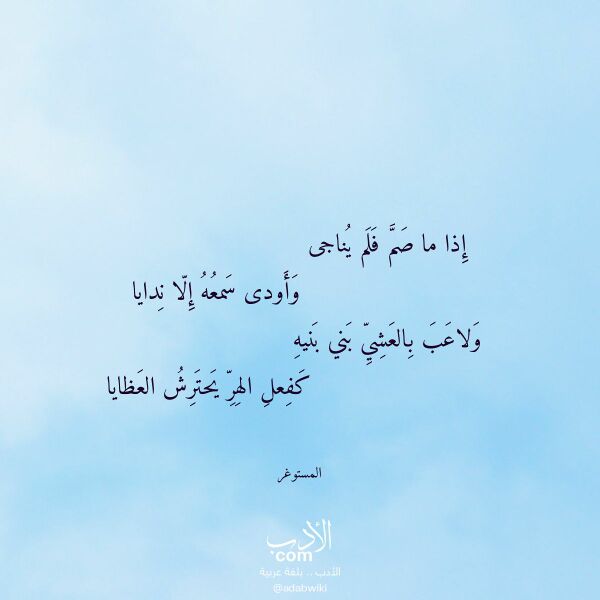 إِذا ما صَمَّ فَلَم يُناجى
وَأَودى سَمعُهُ إِلّا نِدايا
وَلاعَبَ بِالعَشِيِّ بَني بَنيهِ
كَفِعلِ الهِرِّ يَحتَرِشُ العَظايا
المستوغر
الأدب
com
الأدب .. بلغة عربية
@adabwiki